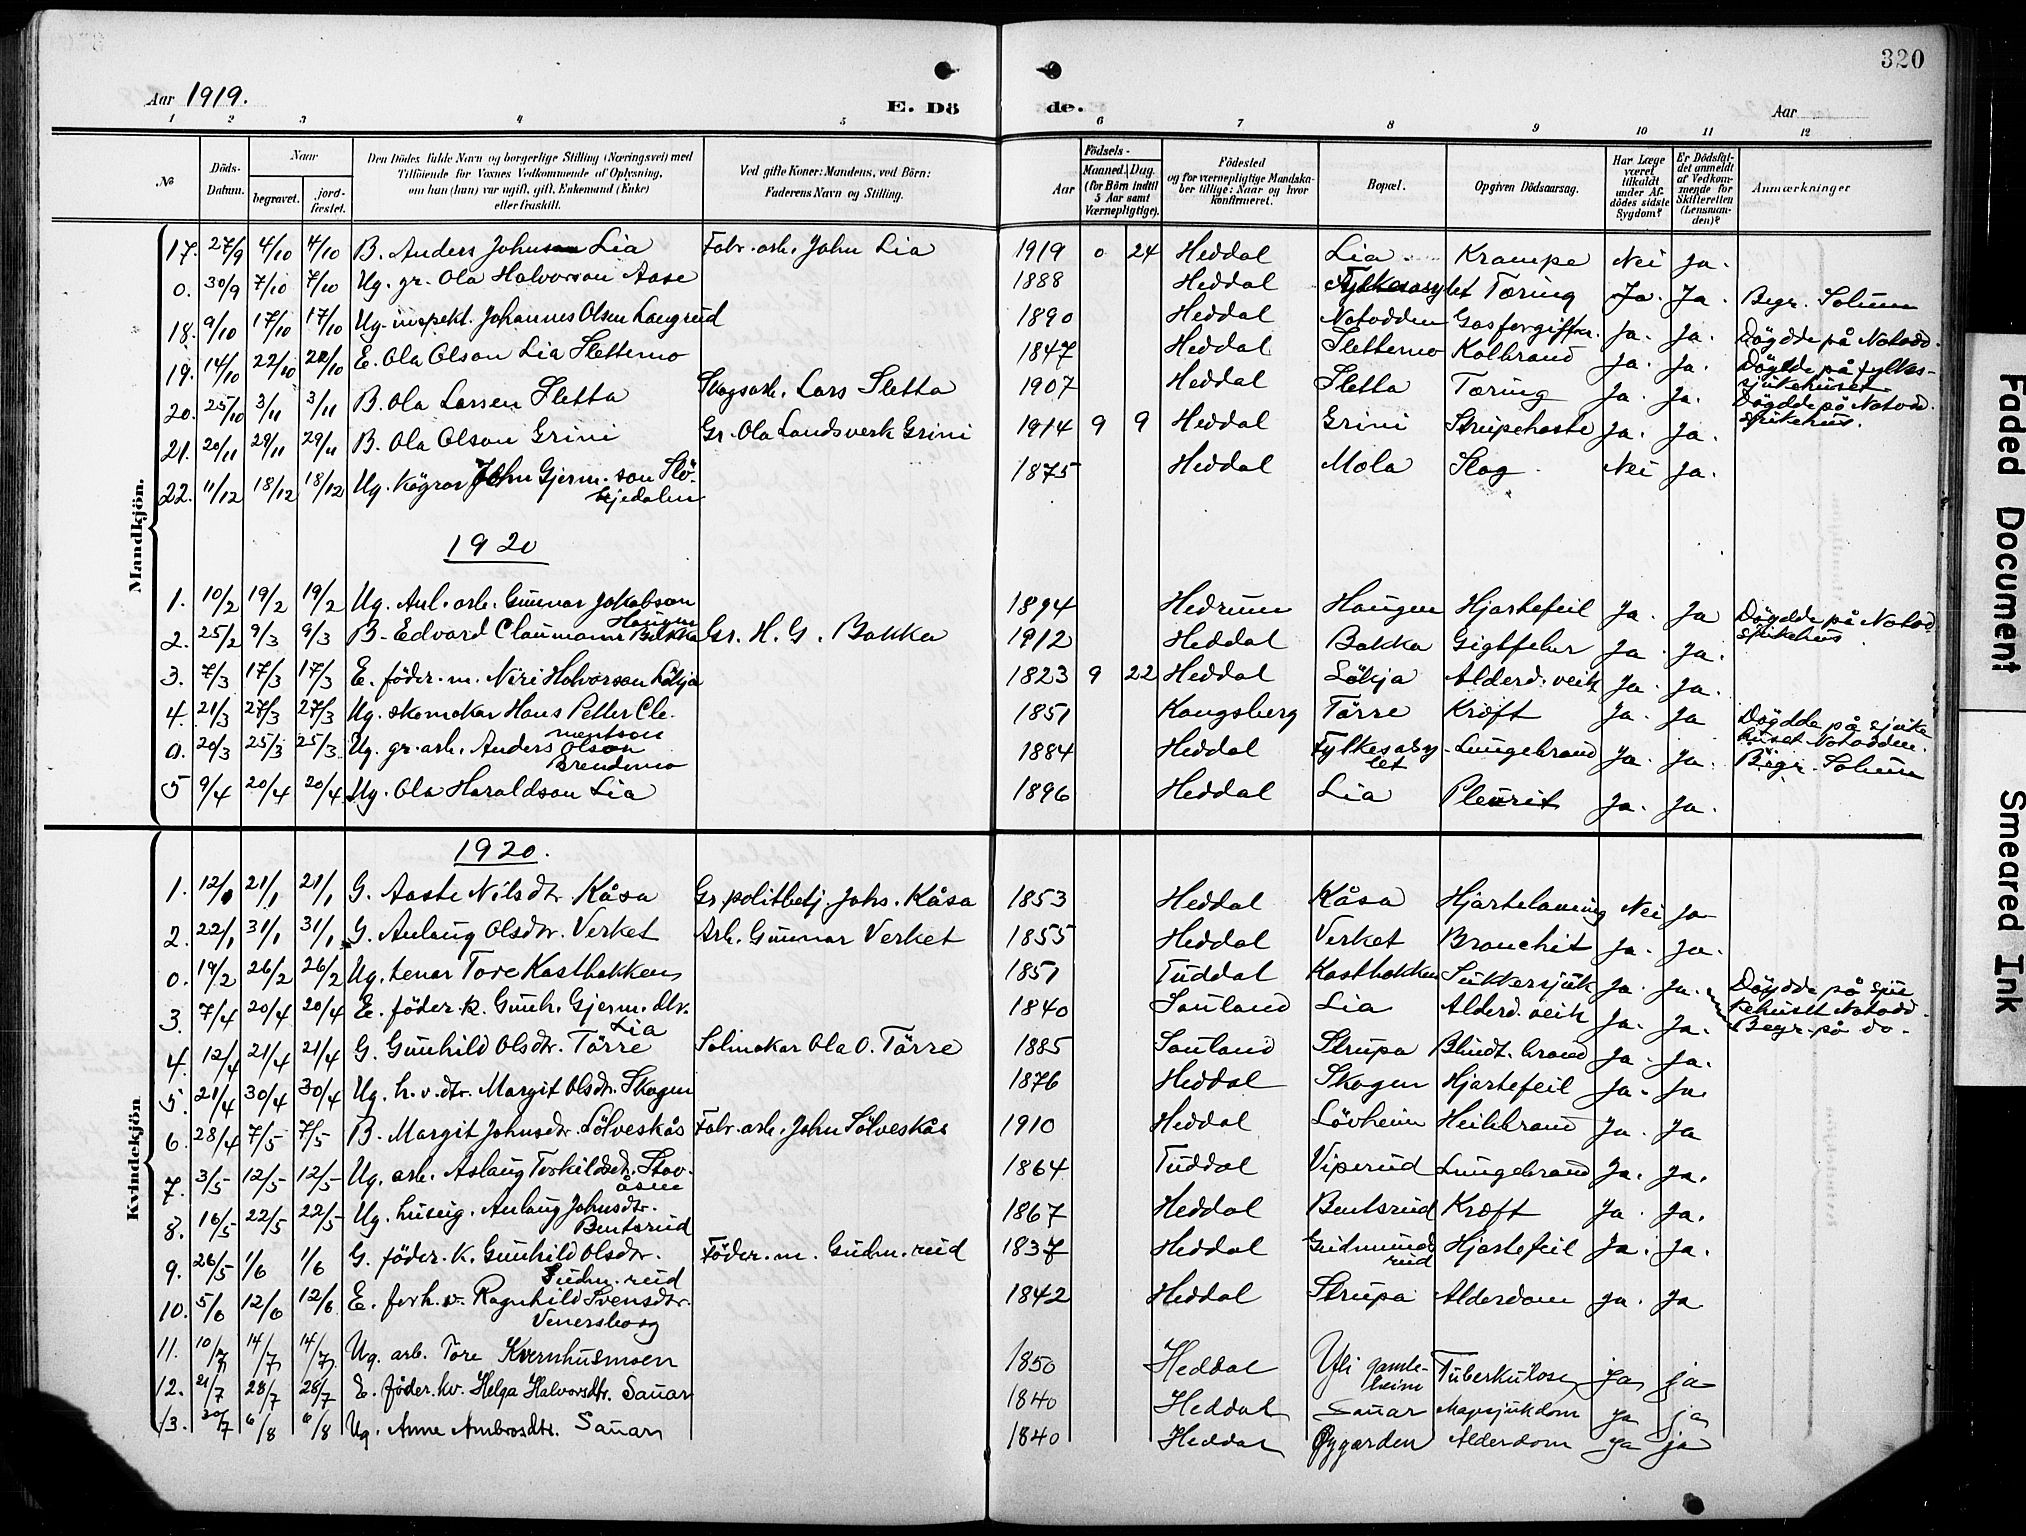 320
Aar 1919.
E. Dö de.
Aar
1 2 3 4 5 6 7 8 9 10 11 12
№
Döds-Datum.
Naar
begravet.
jord-fæstet.
Den Dödes fulde Navn og borgerlige Stilling (Næringsvei) med
Tilföiende for Voxnes Vedkommende af Oplysning,
om han (hun) var ugift, gift, Enkemand (Enke)
eller fraskilt.
Ved gifte Koner: Mandens, ved Börn:
Faderens Navn og Stilling.
Aar
Födsels-
Maaned. Dag.
(for Börn indtil
5 Aar samt
Værnepligtige).
Födested
og for værnepligtige Mandska-
ber tillige: Naar og hvor
konfirmeret.
Bopæl.
Opgiven Dödsaarsag.
Har Læge
været
tilkaldt
under Af-
dödes sidste
Sygdom?
Er Dödsfal-
det anmeldt
af Vedkom-
mende for
Skifteretten
(Lensman-
den)?
Anmærkninger
Mandkjön.
17. 27/9 4/10 4/10 B. Anders Johnson Lia Fabr. arb. John Lia 1919 0 24 Heddal Lia Krampe Nei Ja.
0. 30/9 7/10 7/10 Ug. gr. Ola Halvorson Aase 1888 Heddal Fylkesasylet Tæring Ja. Ja. Begr. Solum
18. 9/10 17/10 17/10 Ug. inspekt. Johannes Olsen Langrud 1890 Heddal Notodden Gasforgiftn. Ja. Ja. Döydde på Notodd.
19. 14/10 22/10 22/10 E. Ola Olson Lia Sletterno 1847 Heddal Sletterno Kolbrand Ja. Ja. Döydde på fylkes-
sjukehuset
20. 25/10 3/11 3/11 B. Ola Larsen Sletta Skogsarb. Lars Sletta 1907 Heddal Sletta Tæring Ja. Ja. Döydde på Notodd.
sjukehus.
21. 20/11 29/11 29/11 B. Ola Olson Grini Gr. Ola Landsverk Grini 1914 9 9 Heddal Grini Strupehoste Ja. Ja.
22. 11/12 18/12 18/12 Ug. kögrar John Gjerm.son Slö-
kjedalen 1875 Heddal Mola Slag Nei Ja.
1920
1. 10/2 19/2 19/2 Ug. Anl. arb. Gunnar Jakobson
Haugen 1894 Hedrum Haugen Hjartefeil Ja. Ja Döydde på Notod.
sjukehus.
2. 25/2 9/3 9/3 B. Edvard Claumann Bakka Gr. H. G. Bakka 1912 Heddal Bakka Gigtfeber Ja. Ja.
3. 7/3 17/3 17/3 E. föder. m. Niri Halvorson Lökja 1823 9 22 Heddal Lökja Alderd. veik Ja. Ja.
4. 21/3 27/3 27/3 Ug. skomakar Hans Petter Cle-
mentson 1851 Kongsberg Törre Kræft Ja. Ja Döydde på sjuke
huset Notodden.
0. 20/3 25/3 25/3 Ug. gr. arb. Anders Olson
Brendemo 1884 Heddal Fylkesasy-
let Lungebrand Ja. Ja. Begr. Solum
5 9/4 20/4 20/4 Ug. Ola Haraldson Lia 1896 Heddal Lia Pleurit Ja. Ja.
Kvindekjön
1920.
1. 12/1 21/1 21/1 G. Aaste Nilsdtr. Kåsa Gr. politbetj. Johs. Kåsa 1853 Heddal Kåsa Hjartelaming Nei Ja
2. 22/1 31/1 31/1 G. Anlaug Olsdtr. Verket Arb. Gunnar Verket 1855 Heddal Verket Bronchit Ja. Ja.
0. 19/2 26/2 26/2 Ug. tenar Tore Kasthakken 1851 Tuddal Kasthakken Sukkersjuk Ja. Ja. Döydde på sju
kehuset Notodd.
Begr. på do.
3. 7/4 20/4 20/4 E. föder. k. Gunh. Gjerm. dtr.
Lia 1840 Sauland Lia Alderd. veik Ja. Ja.
4. 12/4 21/4 21/4 G. Gunhild Olsdtr. Törre Salmakar Ola O. Törre 1885 Sauland Strupa Blindt. brand Ja. Ja.
5. 21/4 30/4 30/4 Ug. h. v. dtr. Margit Olsdtr. Skogen 1876 Heddal Skogen Hjartefeil Ja. Ja.
6. 28/4 7/5 7/5 B. Margit Johnsdtr. Sölveskås Fabr. arb. John Sölveskås 1910 Heddal Lövheim Heilebrand Ja. Ja
7. 3/5 12/5 12/5 Ug. arb. Aslaug Torkildsdt. Stav-
åsen 1864 Tuddal Viperud Lungebrand Ja. Ja.
8. 16/5 22/5 22/5 Ug. huseig. Anlaug Johnsdtr.
Bentsrud 1867 Heddal Bentsrud Kræft Ja. Ja.
9. 26/5 1/6 1/6 G. föder. k. Gunhild Olsdtr.
Gudm.rud Föder. m. Gudm.rud 1837 Heddal Gudmunds
rud Hjartefeil Ja. Ja.
10. 5/6 12/6 12/6 E. forh. v. Ragnhild Svensdtr.
Venersborg 1842 Heddal Strupa Alderdom Ja. Ja
11. 10/7 14/7 14/7 Ug. arb. Tore Kvernhusmoen 1850 Heddal Yli gamle-
heim Tuberkulose Ja ja
12. 21/7 28/7 28/7 E. föder. kv. Helga Halvorsdtr. Sauar 1840 Heddal Sauar Magesjukdom ja ja
13. 30/7 6/8 6/8 Ug. Anne Ambrosdtr. Sauar 1840 Heddal Øygarden Alderdom ja ja
Faded Document
Smeared Ink